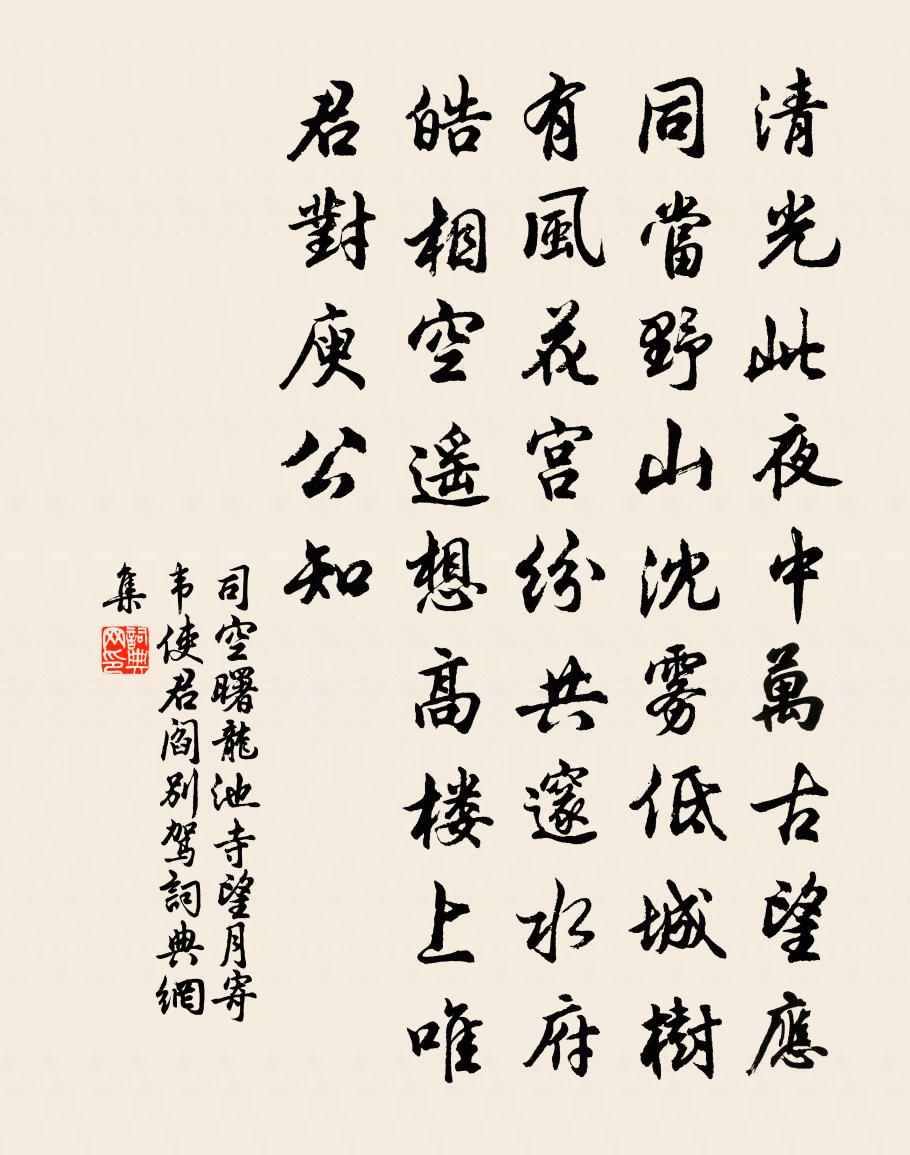 清光此夜中萬古望應
同當野山沈霧低城樹
有風花宮紛共邃水府
皓相空遥想高楼上唯
君對庾公知
司空曙龍池寺望月寄
韦使君閻別駕詞典網
集
詞典网印